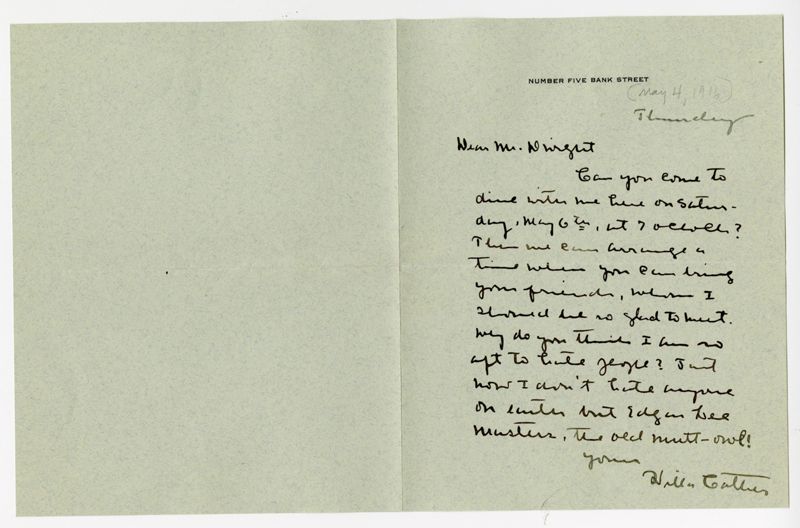 NUMBER FIVE BANK STREET
(May 4, 1916)
Thursday
Dear Mr. Dwight
Can you come to
dine with me here on Satur-
day, May 6th, at 7 oclock?
Then we can arrange a
time when you can bring
your friends, whom I
should be so glad to meet.
Why do you think I am so
apt to hate people? Just
now I don't hate anyone
on earth but Edgar Lee
Masters, the old mutt-owl!
Yours
Willa Cather